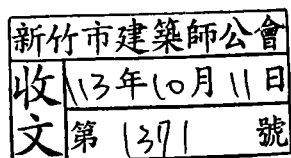 新竹市建築師公會
收文
113年10月11日
第 1371 號